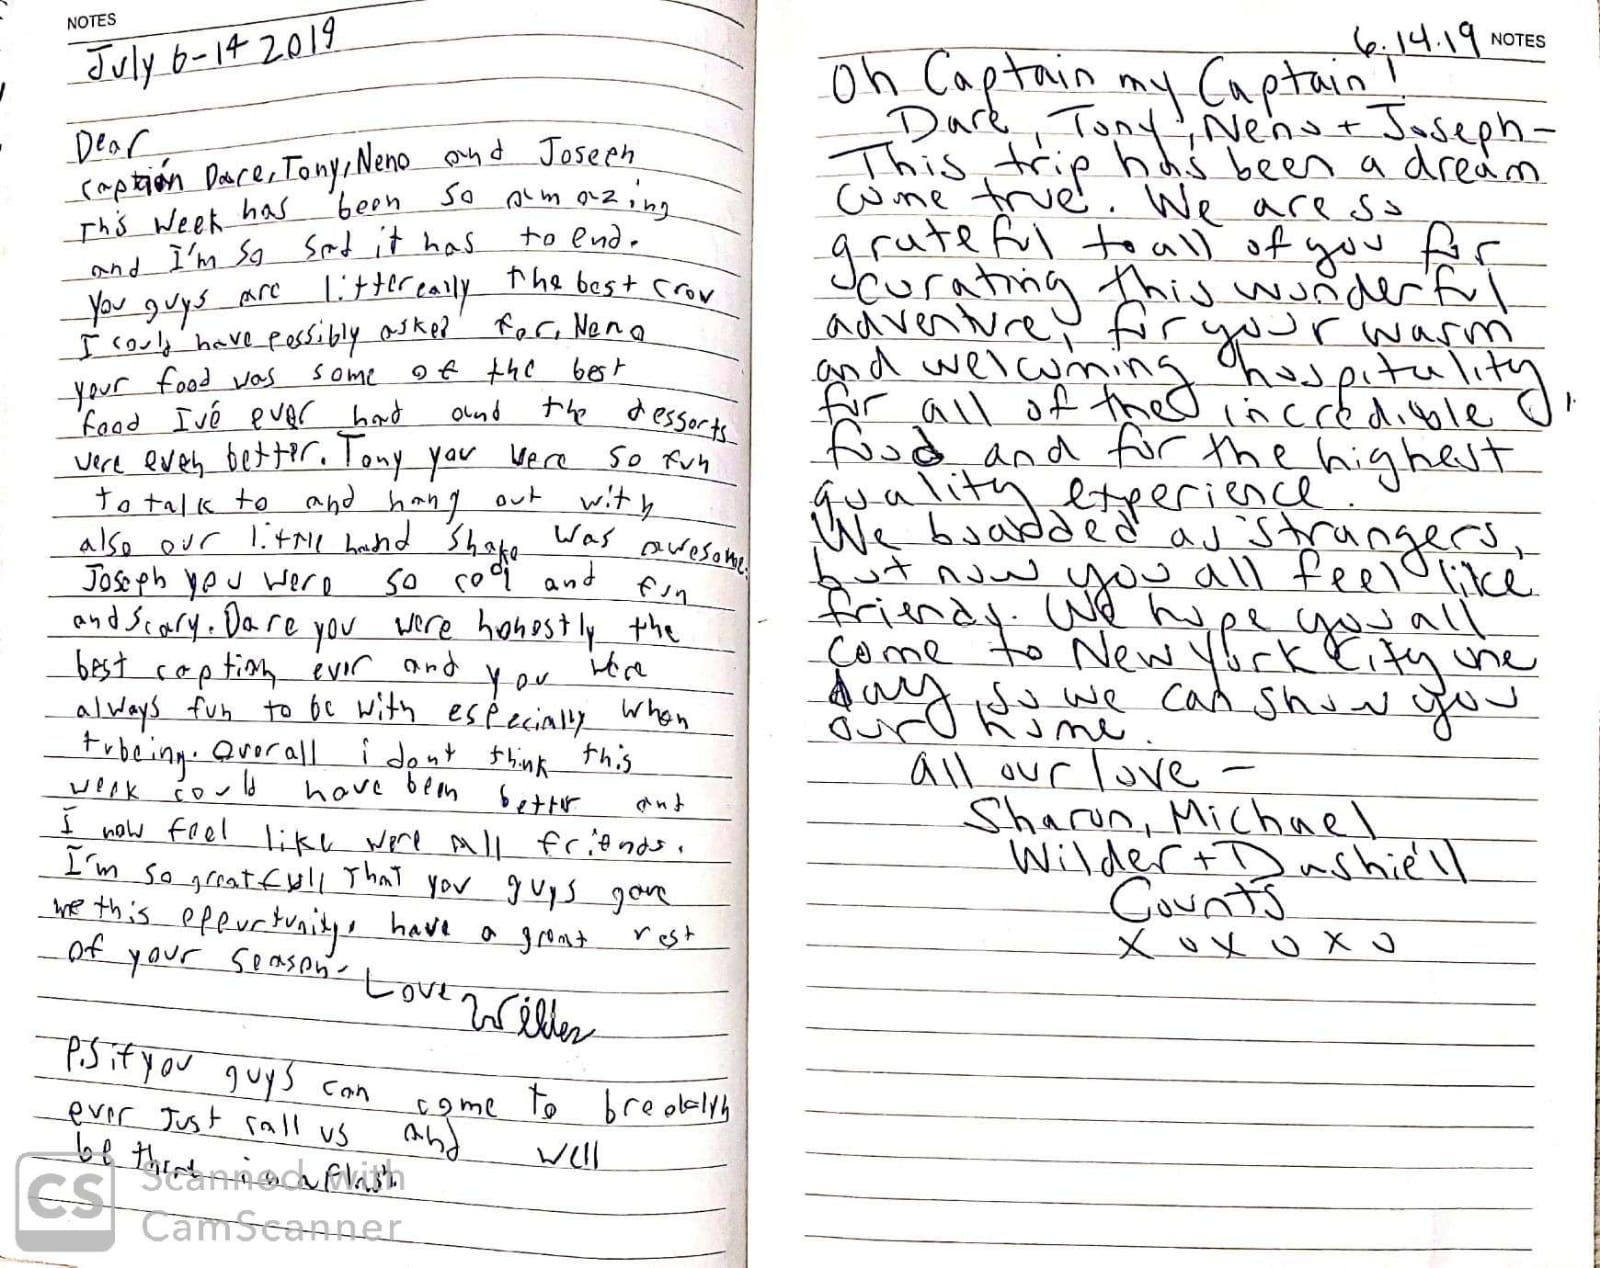 NOTES
July 6-14 2019
Dear
captain Dare, Tony, Neno and Joseph
This week has been so amazing
and I'm so sad it has to end.
You guys are littereally the best crow
I could have possibly asked for, Neno
your food was some of the best
food Ive ever had and the dessorts
were even better. Tony you were so fun
to talk to and hang out with
also our little hand shake was awesome.
Joseph you were so cool and fun
and scary. Dare you were honostly the
best caption ever and you were
always fun to be with especially when
tubeing. Overall i dont think this
week could have been better and
I now feel like were all friends.
I'm so greatfull that you guys gave
me this oppourtunity, have a great rest
of your season- Love
Wilder
P.S if you guys can come to brooklyn
ever Just call us and well
be there in a flash
CS Scanned with
CamScanner
6.14.19 NOTES
Oh Captain my Captain!
Dare, Tony, Neno + Joseph-
This trip has been a dream
come true. We are so
grateful to all of you for
curating this wonderful
adventure, for your warm
and welcoming hospitality,
for all of the incredible
food and for the highest
quality experience.
We boarded as strangers,
but now you all feel like
friends. We hope you all
come to New York City one
day so we can show you
our home.
all our love -
Sharon, Michael
Wilder + Dashiell
Counts
xoxoxo